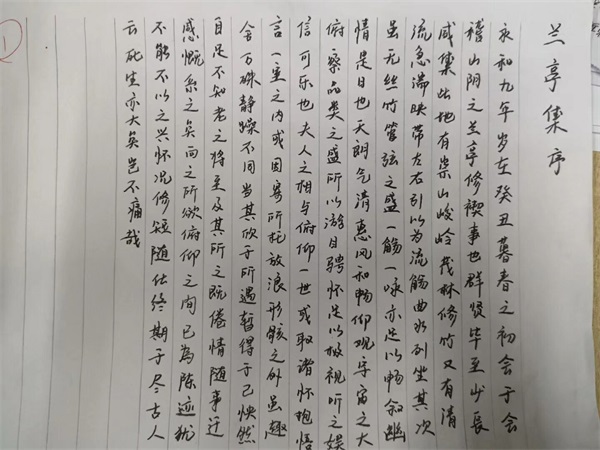 兰亭集序
永和九年岁在癸丑暮春之初会于会
稽山阴之兰亭修禊事也群贤毕至少长
咸集此地有崇山峻岭茂林修竹又有清
流急湍映带左右引以为流觞曲水列坐其次
虽无丝竹管弦之盛一觞一咏亦足以畅叙幽
情是日也天朗气清惠风和畅仰观宇宙之大
俯察品类之盛所以游目骋怀足以极视听之娱
信可乐也夫人之相与俯仰一世或取诸怀抱悟
言一室之内或因寄所托放浪形骸之外虽趣
舍万殊静躁不同当其欣于所遇暂得于己怏然
自足不知老之将至及其所之既倦情随事迁
感慨系之矣向之所欣俯仰之间已为陈迹犹
不能不以之兴怀况修短随化终期于尽古人
云死生亦大矣岂不痛哉
1